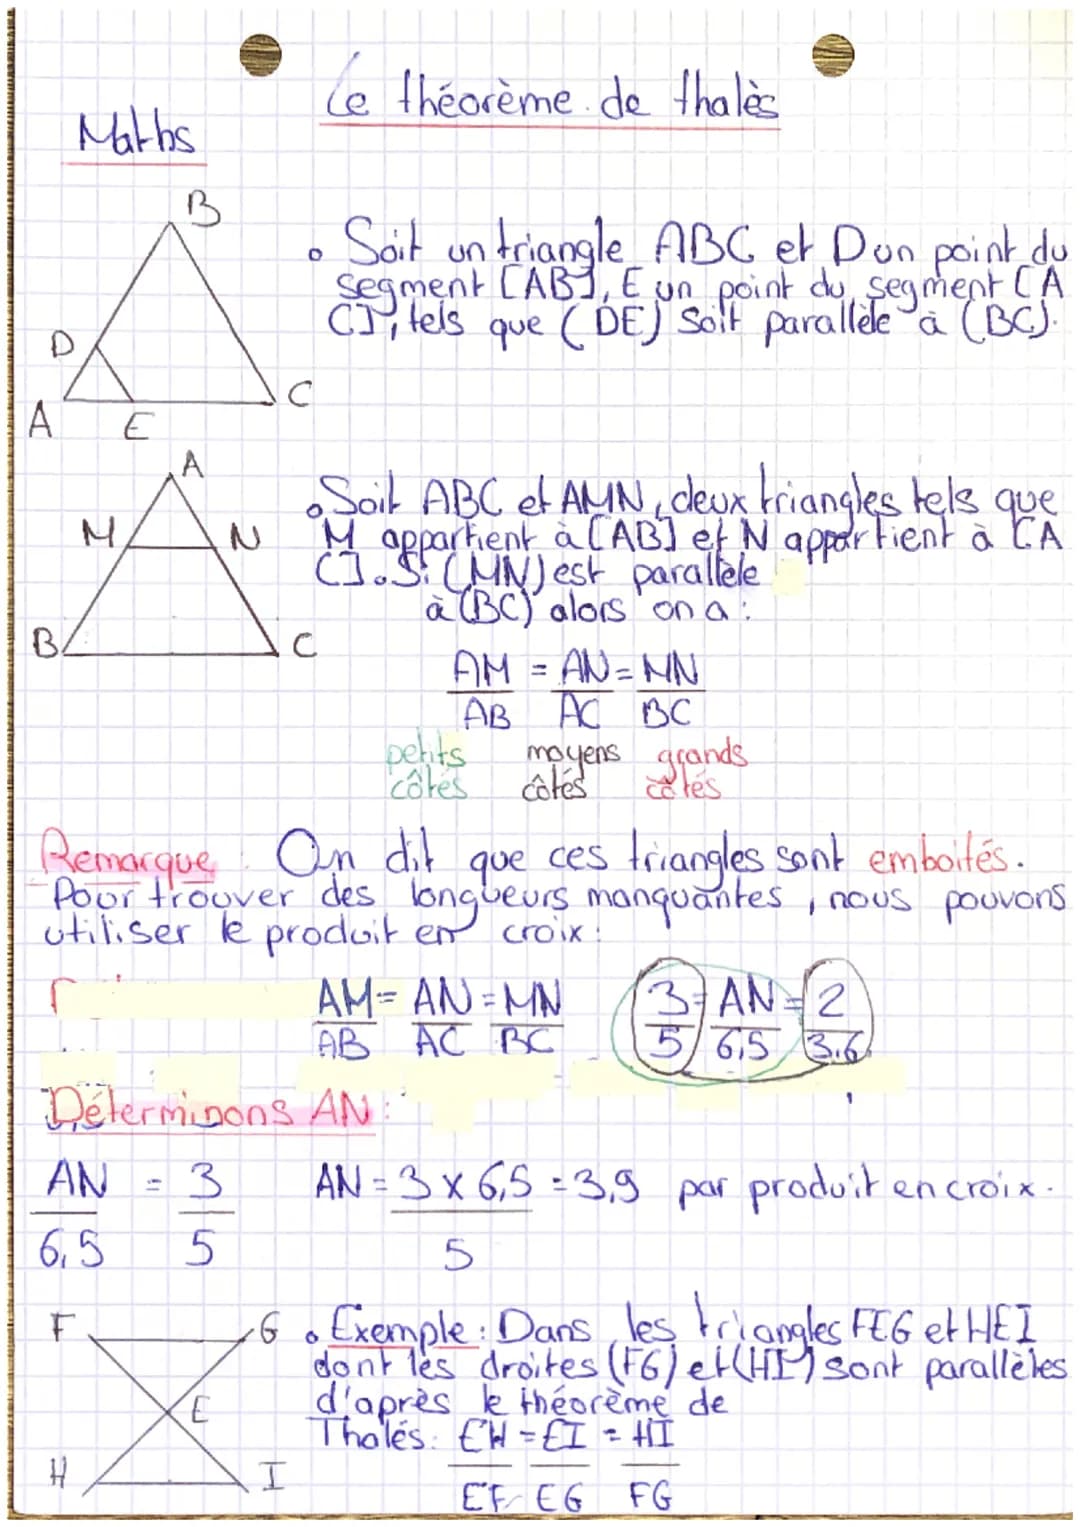 Le théorème de thalès
Maths
B
D
A
E
C
• Soit un triangle ABC et D un point du
segment [AB], E un point du segment [A
C], tels que (DE) soit parallèle à (BC).
A
M
N
B
C
• Soit ABC et AMN, deux triangles tels que
M appartient à [AB] et N appartient à [A
C]. Si (MN) est parallèle
à (BC) alors on a :
AM = AN = MN
AB AC BC
petits moyens grands
côtés côtés côtés
Remarque : On dit que ces triangles sont emboités.
Pour trouver des longueurs manquantes, nous pouvons
utiliser le produit en croix :
AM = AN = MN 3 = AN = 2
AB AC BC 5 6,5 3,6
Déterminons AN :
AN = 3 AN = 3 x 6,5 = 3,9 par produit en croix.
6,5 5 5
F
G
E
H
I
• Exemple : Dans les triangles FEG et HEI
dont les droites (FG) et (HI) sont parallèles
d'après le théorème de
Thalés : EH = EI = HI
EF EG FG